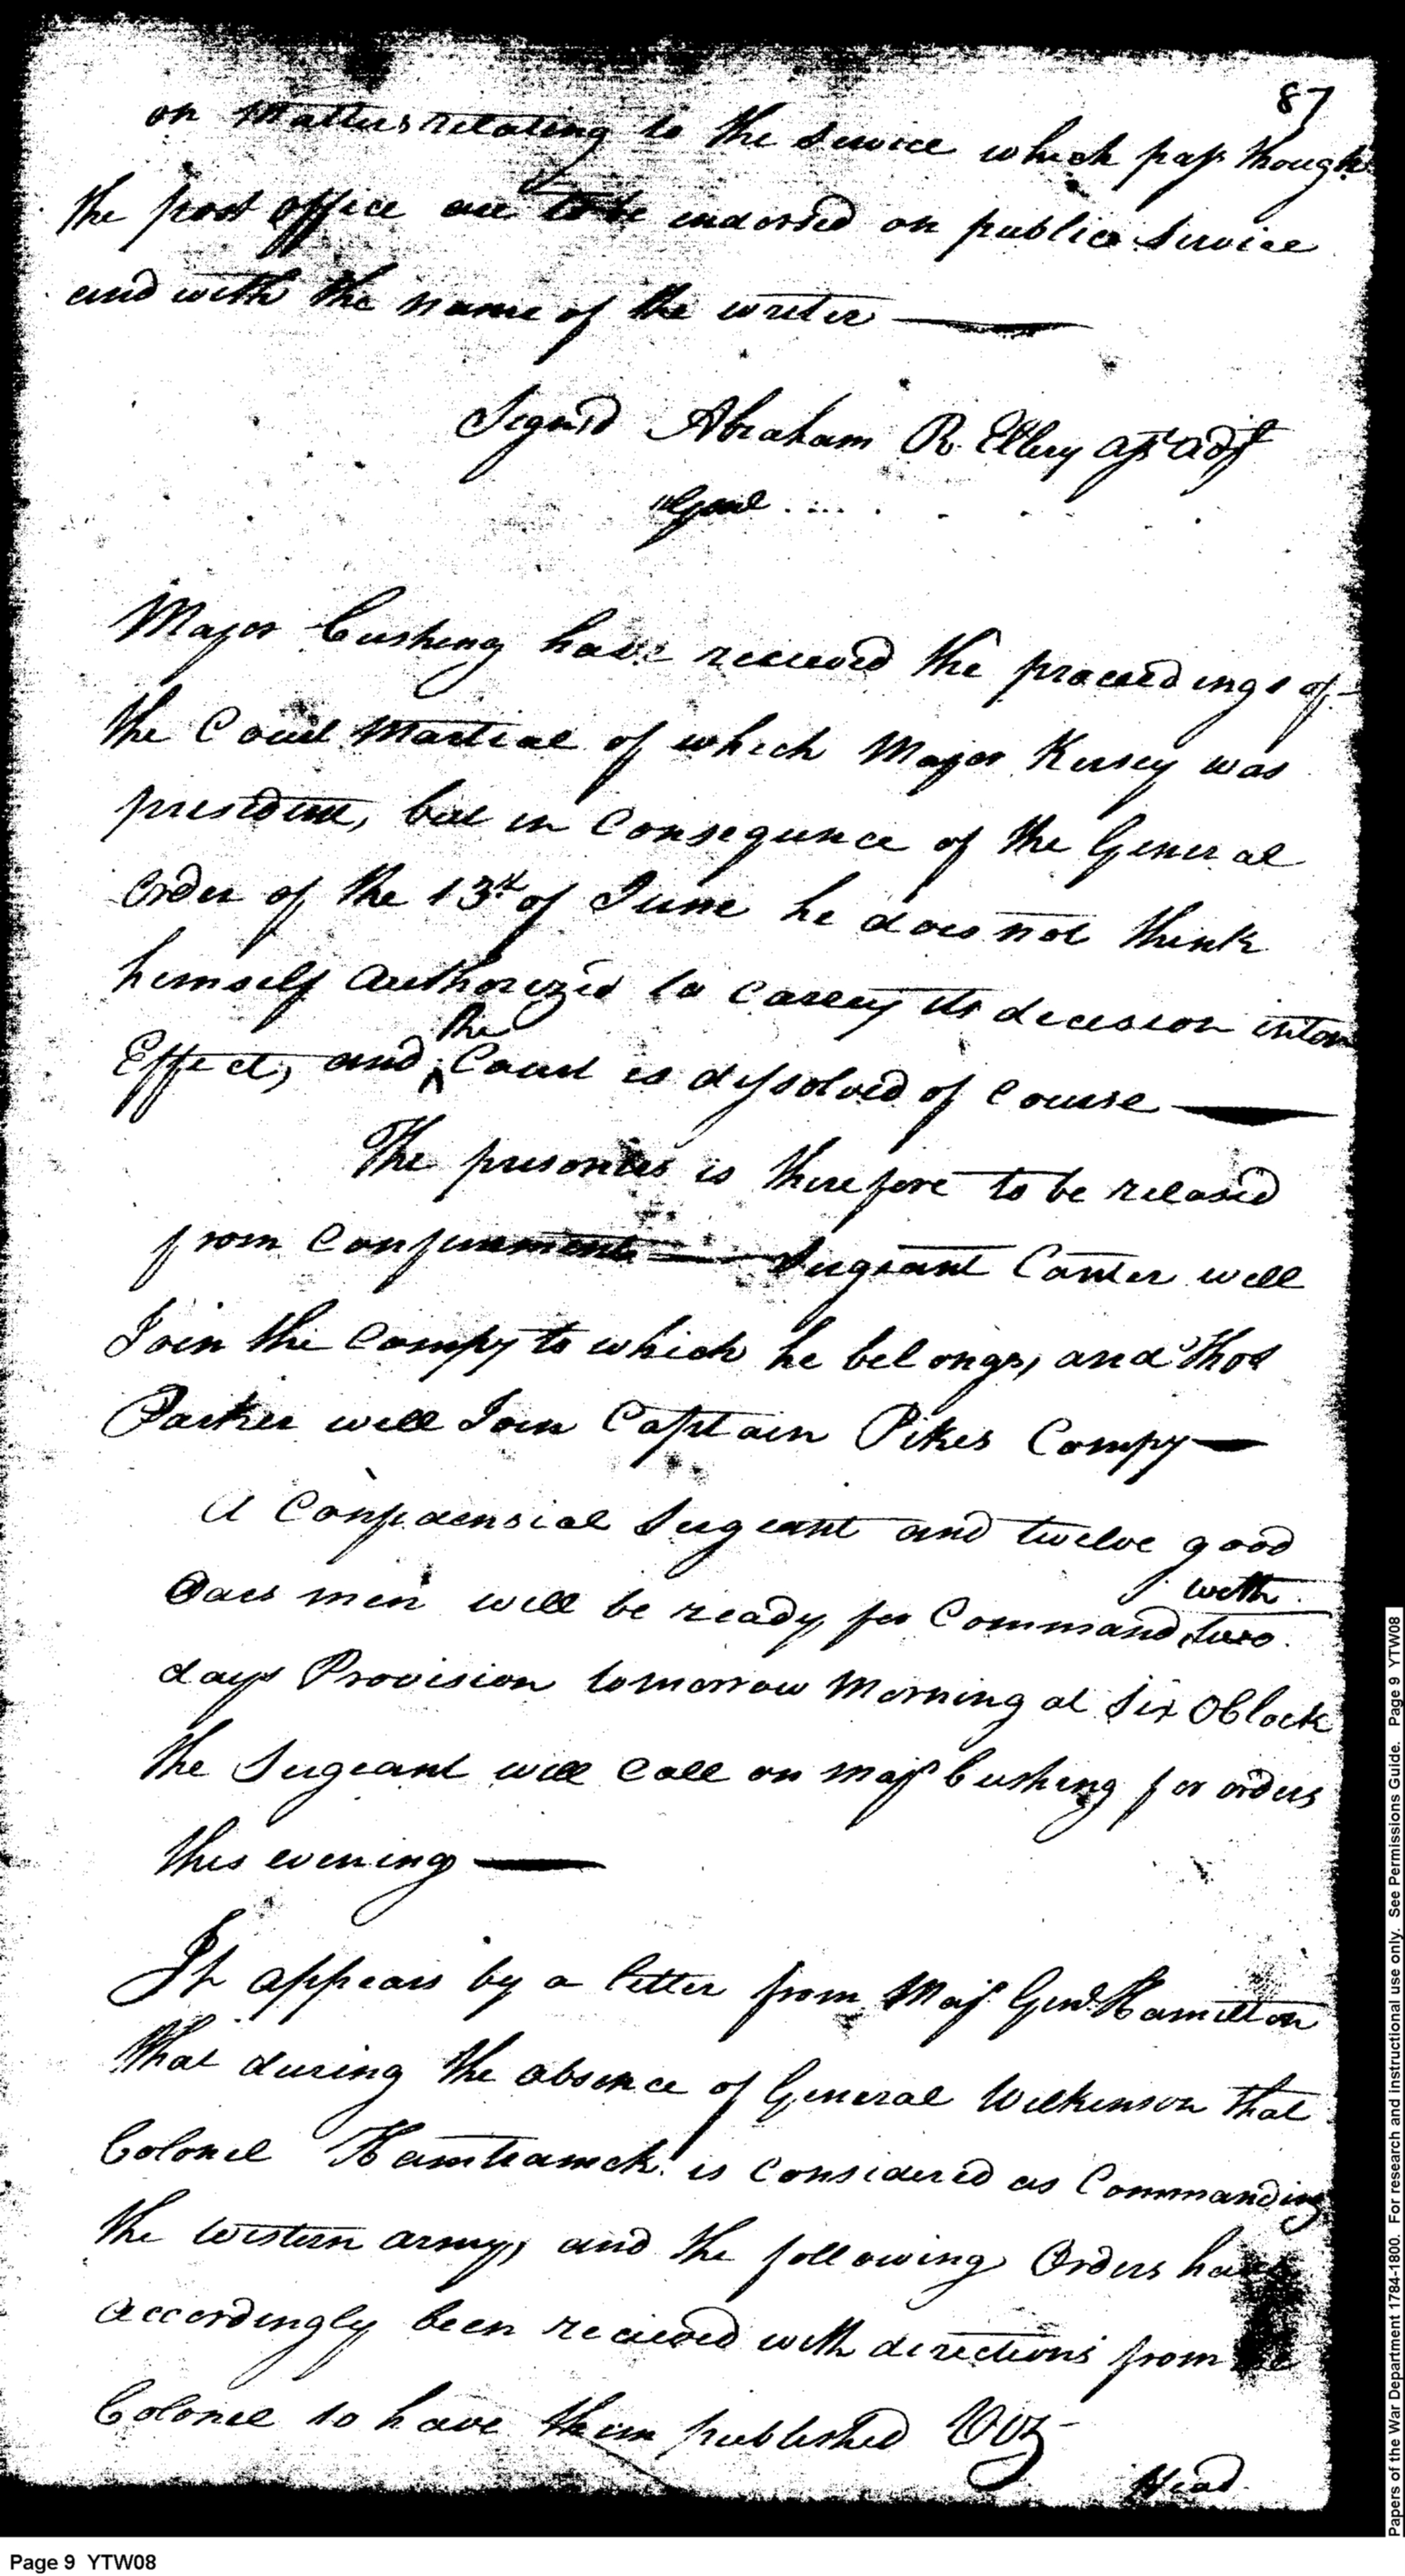 87
on Matters relating to the Service which pass though
the post office are to be endorsed on public Service
and with the name of the writer
Signed Abraham R. Ellery asst adjt
"Genl ....
Major Cushing have received the proceedings of
the Court Martial of which Major Kersey was
president, but in Consequence of the General
Order of the 13th of June he does not think
himself authorized to carrey its decision into
the
Effect, and ^ Court is dissolved of Course
The prisoners is therefore to be relased
from Confinement Sergeant Carter will
Join the Compy to which he belongs, and Thos
Parker will Join Captain Pikes Compy
A Confidensial Sergeant and twelve good
with
Oars men will be ready for Command two
days Provision tomorrow Morning at Six OClock
the Sergeant will Call on Majr Cushing for orders
this evening
It appears by a letter from Majr Genl Hamilton
that during the absence of General Wilkinson that
Colonel Hamtramck is Considered as Commanding
the Western army, and the following Orders have
accordingly been recieved with directions from the
Colonel to have them published Viz
Head
Papers of the War Department 1784-1800. For research and instructional use only. See Permissions Guide. Page 9 YTW08
Page 9 YTW08